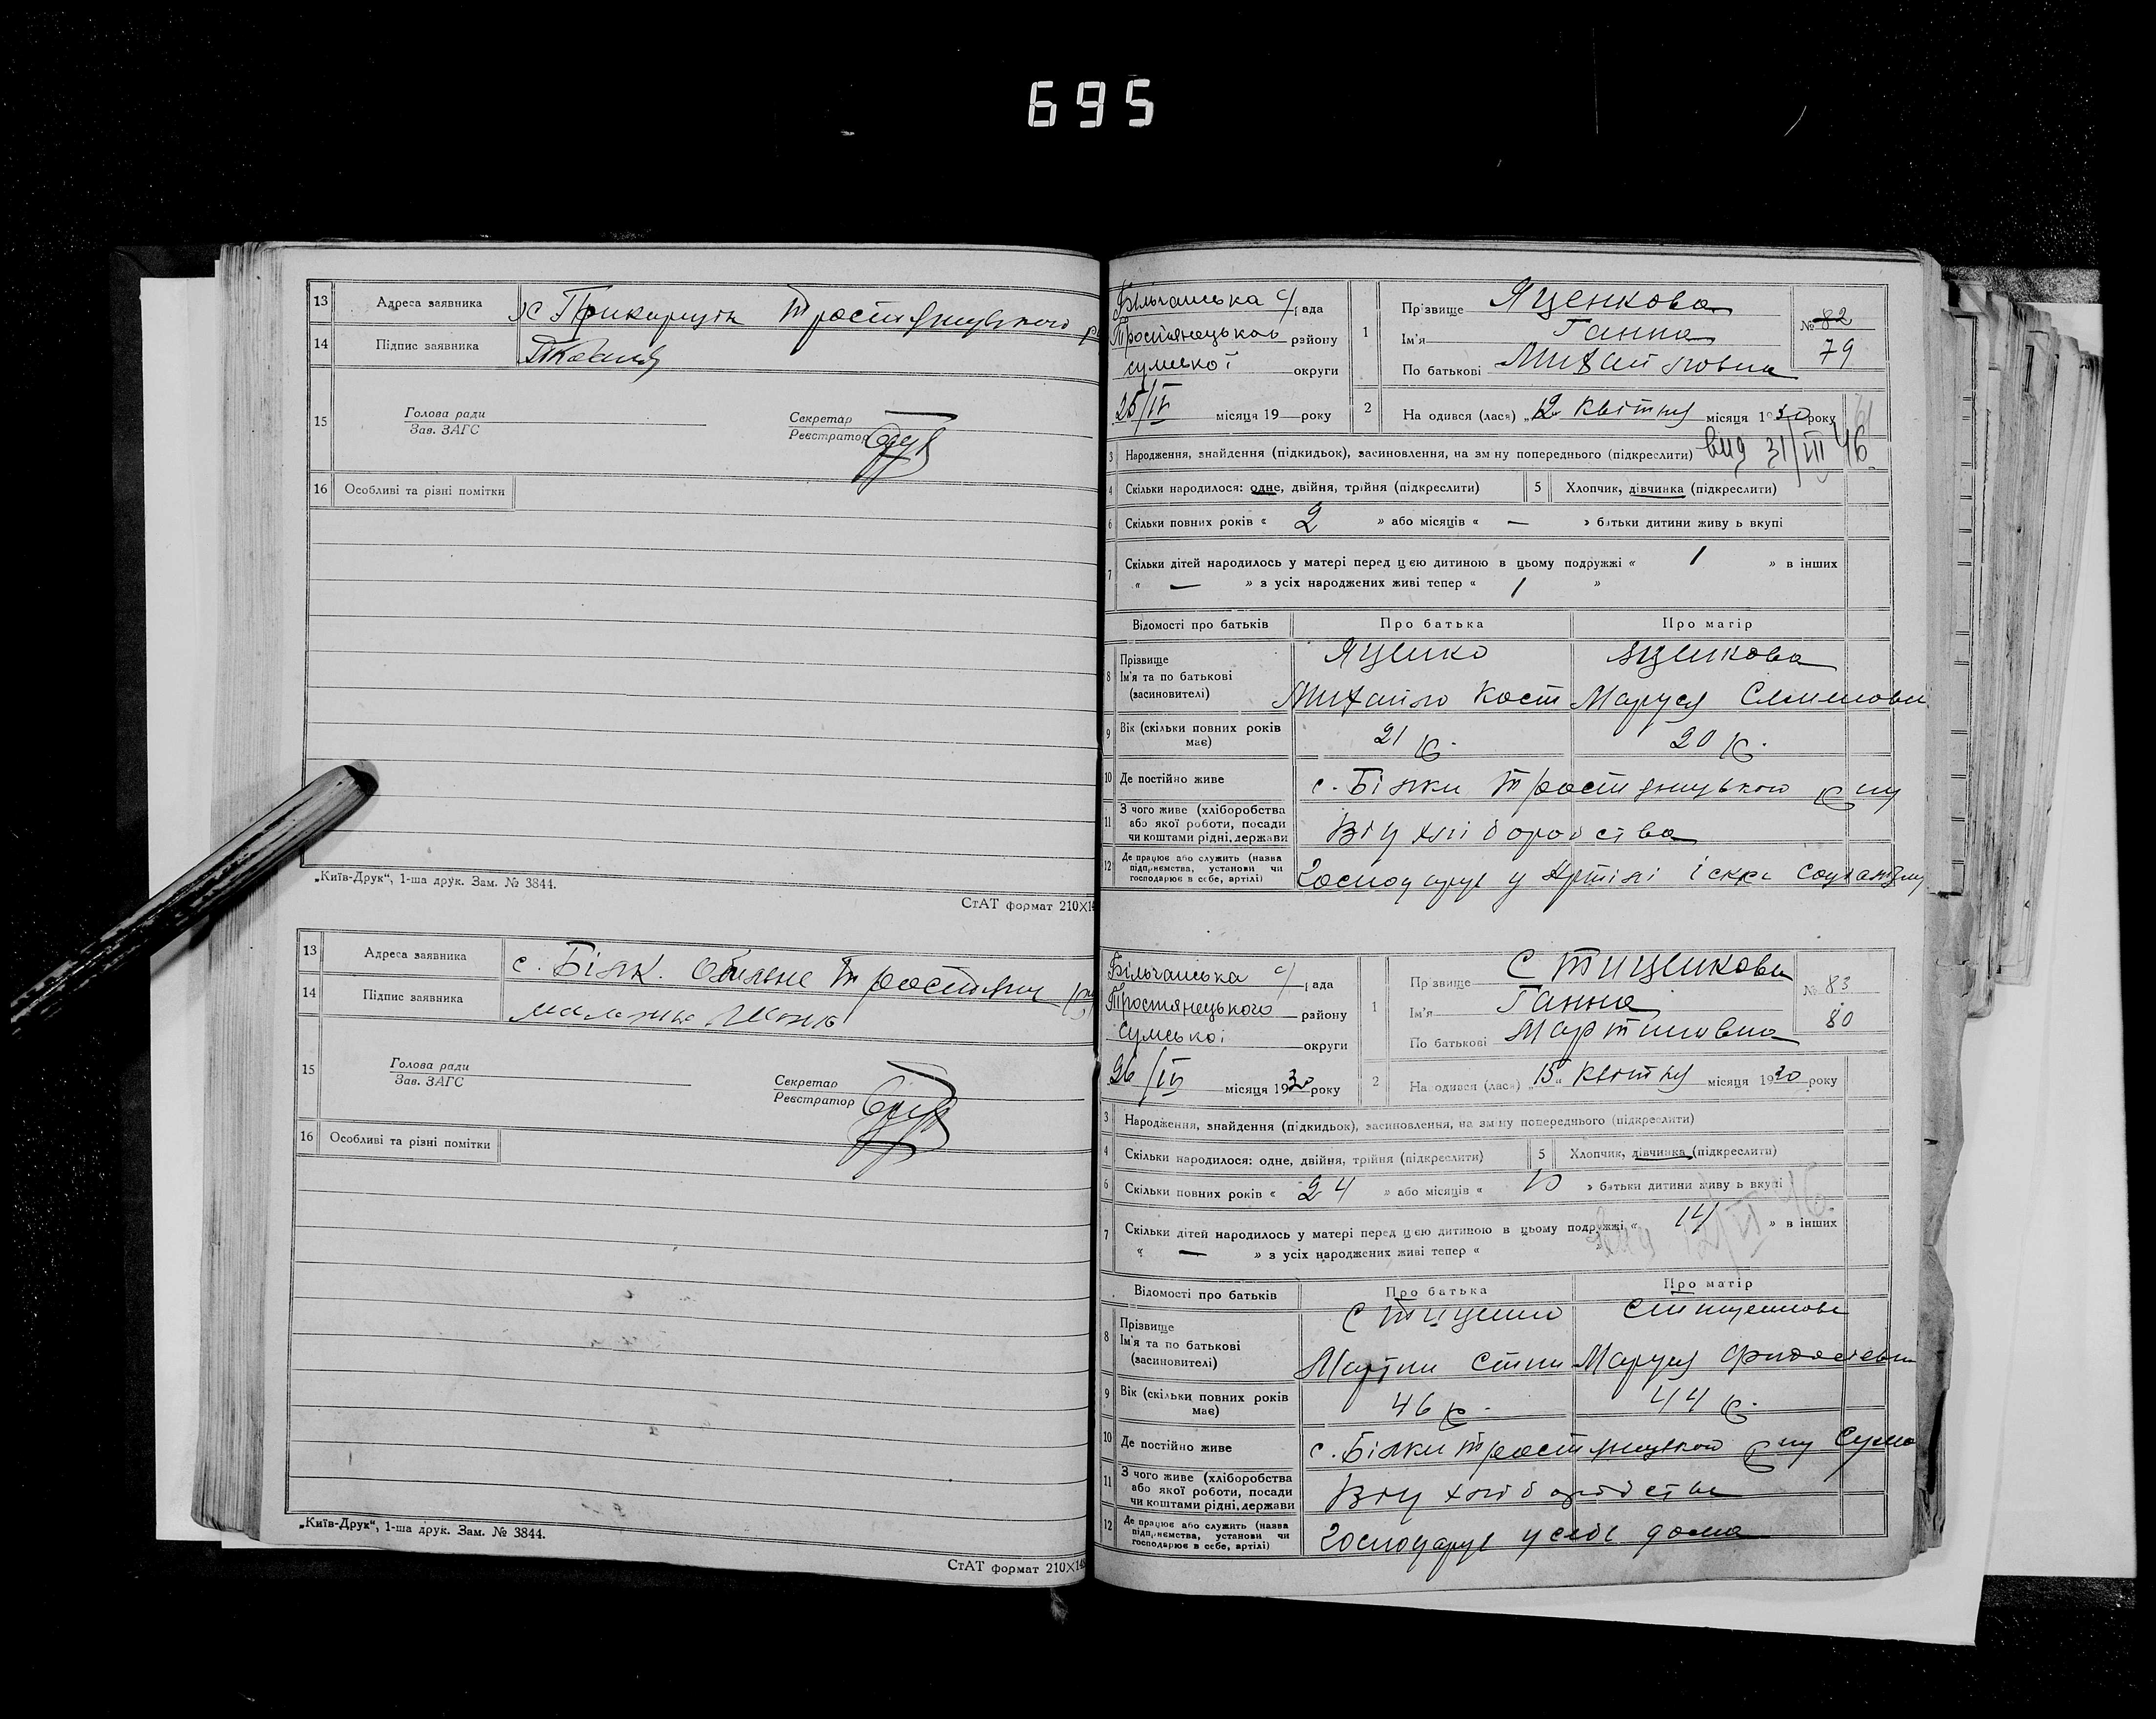 695
13 Адреса заявника х. Прикордік Тростянуцького р
14 Підпис заявника
15 Голова ради
Зав. ЗАГС
Секретар
Реєстратор
16 Особливі та різні помітки
„Київ-Друк“, 1-ша друк. Зам. № 3844.
СтАТ формат 210×14
13 Адреса заявника с. Білк. Тростянец
14 Підпис заявника
15 Голова ради
Зав. ЗАГС
Секретар
Реєстратор
16 Особливі та різні помітки
„Київ-Друк“, 1-ша друк. Зам. № 3844.
СтАТ формат 210×148
Більчанська с/рада
Тростянецького району
сумської округи
25/IV місяця 19 року
1 Прізвище Яценкова
Ім'я Ганна
По батькові Михайловна
№ 82
79
2 На одився (лася) „12 квітня місяця 1930 року 61
3 Народження, знайдення (підкидьок), засиновлення, на зміну попереднього (підкреслити) вид 31/III 46
4 Скільки народилося: одне, двійня, трійня (підкреслити)
5 Хлопчик, дівчинка (підкреслити)
6 Скільки повних років « 2 » або місяців « — » батьки дитини живуть вкупі
7 Скільки дітей народилось у матері перед цією дитиною в цьому подружжі « 1 » в інших
« — » з усіх народжених живі тепер « 1 »
Відомості про батьків Про батька Про матір
8 Прізвище Яценко Яценкова
Ім'я та по батькові
(засиновителі) Михайло Кост Маруся
9 Вік (скільки повних років має) 21 р. 20 р.
10 Де постійно живе с. Білки Тростянуцького р ну
11 З чого живе (хліборобства
або якої роботи, посади
чи коштами рідні, держави Від хліборобства
12 Де працює або служить (назва
підприємства, установи чи
господарює в себе, артілі) Господарує у Артілі іскра соціалізму
Більчанська с/рада
Тростянецького району
сумської округи
26/IV місяця 1930 року
1 Прізвище Стиценкова
Ім'я Ганна
По батькові Мартиновна
№ 83
80
2 На одився (лася) „15„ квітня місяця 1930 року
3 Народження, знайдення (підкидьок), засиновлення, на зміну попереднього (підкреслити)
4 Скільки народилося: одне, двійня, трійня (підкреслити)
5 Хлопчик, дівчинка (підкреслити)
6 Скільки повних років « 24 » або місяців « » батьки дитини живуть вкупі
7 Скільки дітей народилось у матері перед цією дитиною в цьому подружжі « » в інших
« — » з усіх народжених живі тепер «
Відомості про батьків Про батька Про матір
8 Прізвище Стиценко Стиценкова
Ім'я та по батькові
(засиновителі) Мартин Маруся
9 Вік (скільки повних років має) 46 р. 44 р.
10 Де постійно живе с. Білки Тростянуцького р ну Сумс
11 З чого живе (хліборобства
або якої роботи, посади
чи коштами рідні, держави Від хліборобства
12 Де працює або служить (назва
підприємства, установи чи
господарює в себе, артілі) Господарує у себе дома